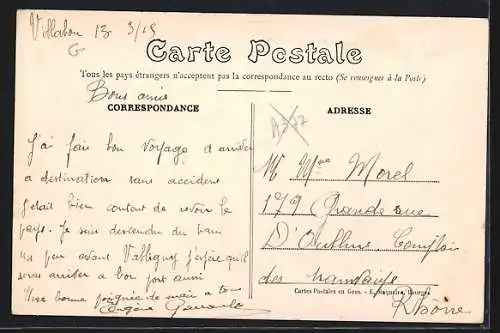 Villabon 13 3/15
G
Carte Postale
Tous les pays étrangers n'acceptent pas la correspondance au recto (Se renseigner à la Poste)
Bons amis
CORRESPONDANCE
J'ai fait bon voyage et arrivé
a destination sans accident
J'etait bien content de revoir le
pays. Je suis descendu du train
un peu avant j'espère qu'il
sera arriver a bon port aussi
Une bonne poignée de main a tous
Eugène
ADRESSE
Mr Mme Morel
179 Grande rue
D'Oullins
des
Cartes Postales en Gros. - E. Bourges
Rhône